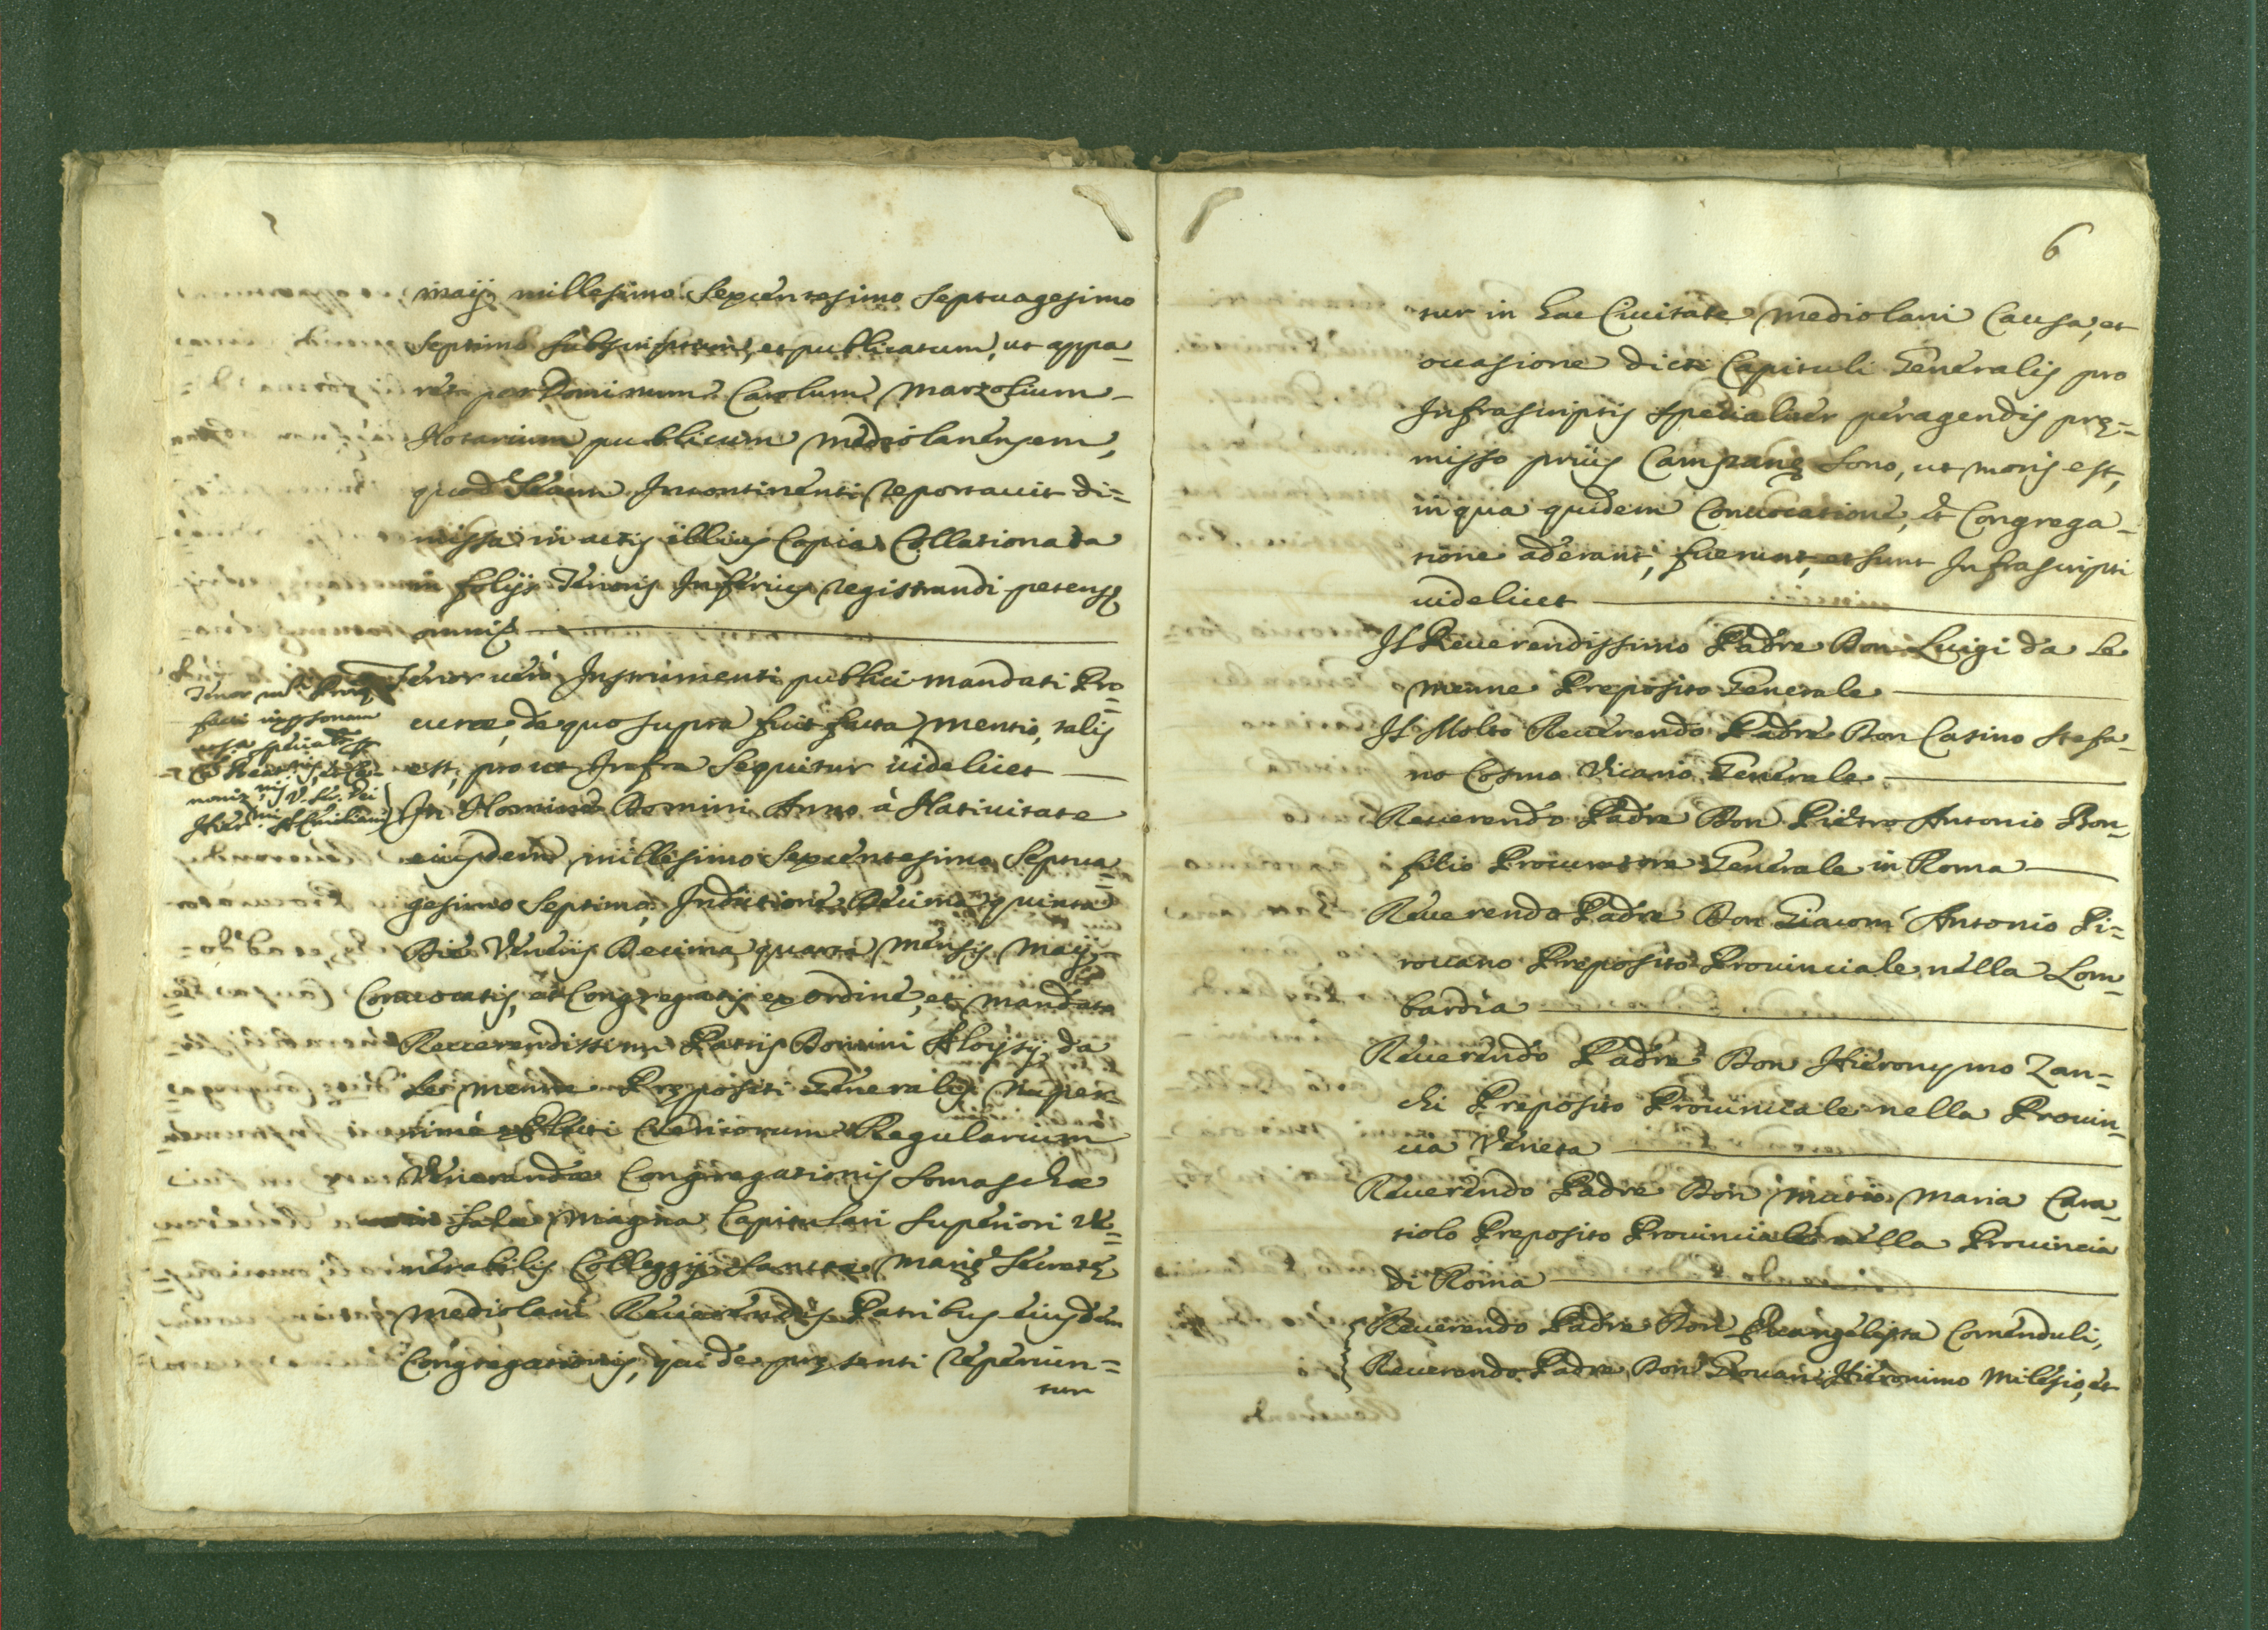 maÿ millesimo Sexcentesimo Septuagesimo
Septimo subscriptum, et publicatum, ut appa_
ret per Dominum Carolum Marzolium
Notarium publicum Mediolanensem,
quod etiam Incontinenti reportauit di=
missa in actis illius Copia Collationata
in folijs Tenoris Inferius registrandi petens
omnis
Tenor uerò Instrumenti publici mandati Pro=
curæ, de quo supra fuit facta mentio, talis
est, prout Infra sequitur uidelicet
Tenor
facti in personam
In Nomine Domini Anno à Natiuitate
eiusdem millesimo Sexcentesimo Septua=
gesimo Septimo, Indictione Decima quinta
Die Veneris Decima quarta mensis Maÿ
Conuocatis, et Congregatis ex ordine, et mandato
Reuerendissimi Patris Domini Aloysÿ da
Le menne Prępositi Generalis nuper=
rimè Electi Clericorum Regularium
Venerandæ Congregationis Somaschæ
in Sala Magna Capitulari Superiori Ve=
nerabilis Collegij Sanctæ Marię Secretę
Mediolani Reuerendis Patribus eiusdem
Congregationis, qui de pręsenti reperiun=
tur
6
tur in hac Ciuitate Mediolani Causa, et
occasione dicti Capituli Generalis pro
Infrascriptis specialiter peragendis prę=
misso priùs Campanę Sono, ut moris est,
in qua quidem Conuocatione, et Congrega_
tione aderant, fuerunt, et sunt Infrascripti
uidelicet
Il Reuerendissimo Padre Don Luigi da Le
menne Preposito Generale
Il Molto Reuerendo Padre Don Catino Stefa_
no Cosmo Vicario Generale
Reuerendo Padre Don Pietro Antonio Bon_
filio Procuratore Generale in Roma
Reuerendo Padre Don Giacom' Antonio Pi=
rouano Preposito Prouinciale nella Lom_
bardia
Reuerendo Padre Don Hieronymo Zan=
chi Preposito Prouinciale nella Prouin_
cia Veneta
Reuerendo Padre Don Mutio Maria Cara_
tiolo Preposito Prouinciale nella Prouincia
di Roma
Reuerendo Padre Don Euangelista Comenduli,
Reuerendo Padre Don Giouani Hieronimo Milesio, et
Reuerendo